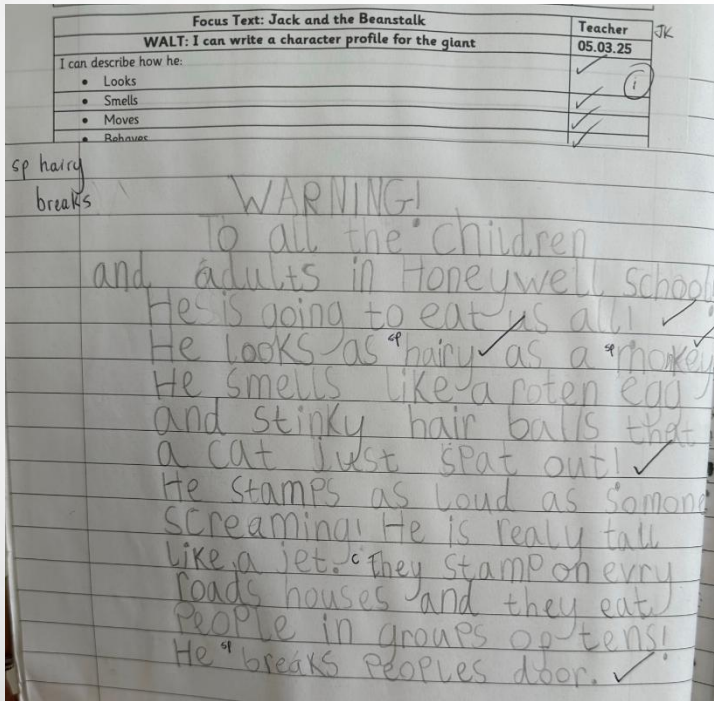 Focus Text: Jack and the Beanstalk
Teacher JK
WALT: I can write a character profile for the giant
05.03.25
I can describe how he:
• Looks
i
• Smells
• Moves
• Behaves
sp hairy
breaks
WARNING!
To all the children
and adults in Honeywell School
He is going to eat us all!
He looks as sp hairy as a sp monkey
He smells like a roten egg
and stinky hair balls that
a cat just spat out!
He stamps as loud as somone
screaming! He is realy tall
like a jet. c they stamp on evry
roads houses and they eat
people in groups of tens!
He sp breaks peoples door.